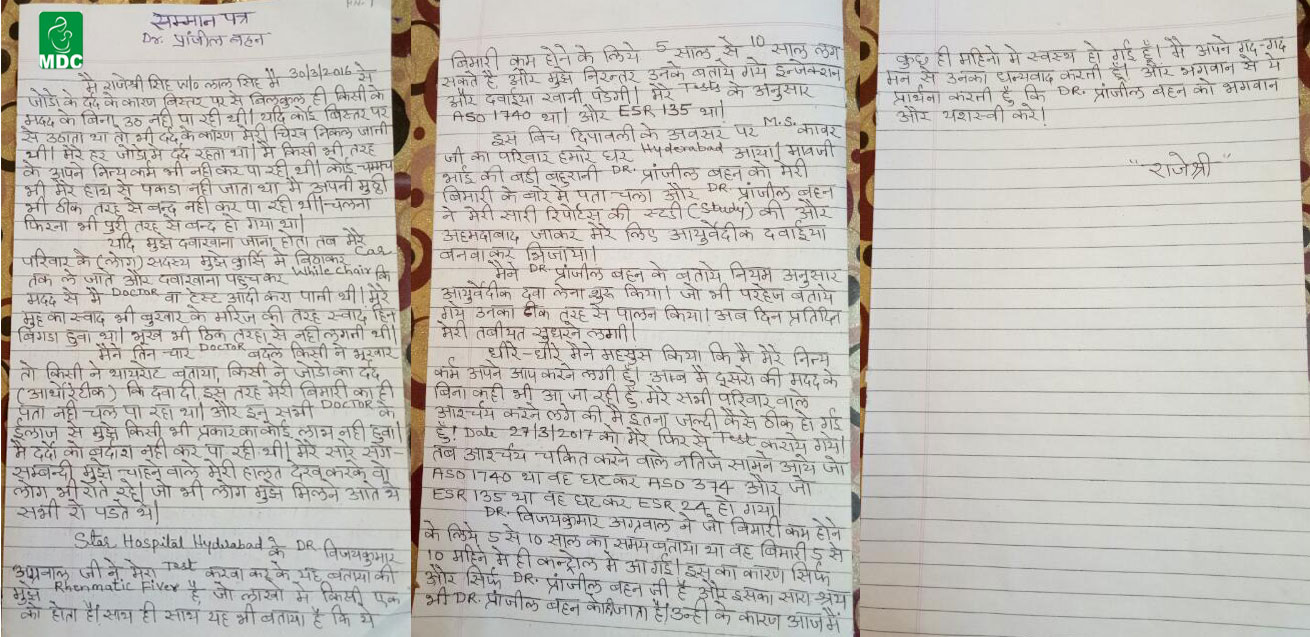 सम्मान पत्र
Dr. प्रांजील बहन
MDC
मै राजेश्री सिंह w/o लाल सिंह मै 30/3/2016 से
जोडो के दर्द के कारण बिस्तर पर से बिलकुल ही किसी के
मदद के बिना उठ नही पा रही थी। यदि कोई बिस्तर पर
से उठाता था तो भी दर्द के कारण मेरी चिख निकल जाती
थी। मेरे हर जोडोमे दर्द रहता था। मै किसी भी तरह
के अपने नित्यकर्म भी नही कर पा रही थी। कोई चम्मच
भी मेरे हाथ से पकडा नही जाता था मै अपनी मुठ्ठी
भी ठीक तरह से बन्द नही कर पा रही थी।-चलना
फिरना भी पुरी तरह से बन्द हो गया था।
यदि मुझे दवाखाना जाना होता तब मेरे
परिवार के (लोग) सदस्य मुझे कुर्सि मे बिठाकर Car
तक ले जाते और दवाखाना पहुचकर While Chair कि
मदद से मै DOCTOR वा टेस्ट आदी करा पाती थी। मेरे
मुह का स्वाद भी बुखार के मरिज की तरह स्वाद हिन
बिगडा हुवा था। भुख भी ठिक तरहा से नही लगती थी।
मैने तिन-चार DOCTOR बदले किसी ने भुखार
तो किसी ने थायराट बताया, किसी ने जोडो का दर्द
(आर्थोरेटीक) कि दवा दी, इस तरह मेरी बिमारी का ही
पता नही चल पा रहा था। और इन सभी DOCTOR के
ईलाज से मुझे किसी भी प्रकार का कोई लाभ नही हुवा।
मै दर्द को बर्दाश नही कर पा रही थी। मेरे सारे सगे-
सम्बन्धी मुझे चाहने वाले मेरी हालत देख करके वो
लोग भी रोते रहे। जो भी लोग मुझे मिलने आते थे
सभी रो पडते थे।
Star Hospital Hyderabad के DR विजयकुमार
अग्रवाल जी ने मेरा Test करवा कर के यह बताया की
मुझे Rhenmatic Fiver है, जो लाखो मे किसी एक
को होता है। साथ ही साथ यह भी बताया है कि ये
बिमारी कम होने के लिये 5 साल से 10 साल लग
सकते है और मुझे निरन्तर उनके बताये गये इन्जेक्शन
और दवाईया खानी पडेगी। मेरे Tests के अनुसार
ASO 1740 था। और ESR 135 था।
इस बिच दिपावली के अवसर पर M.S. कावर
जी का परिवार हमारे घर Hyderabad आया। मावजी
भाई की बडी बहुरानी DR. प्रांजील बहन को मेरी
बिमारी के बारे मे पता चला और DR. प्रांजील बहन
ने मेरी सारी रिपोर्टस की स्टडी (Study) की और
अहमदाबाद जाकर मेरे लिए आयुर्वेदीक दवाईया
बनवाकर भिजाया।
मैने DR. प्रांजील बहन के बताये नियम अनुसार
आयुर्वेदीक दवा लेना शुरू किया। जो भी परहेज बताये
गये उनका ठीक तरह से पालन किया। अब दिन प्रतिदिन
मेरी तबीयत सुधरने लगी।
धीरे-धीरे मैने महसुस किया कि मै मेरे नित्य
कर्म अपने आप करने लगी हुँ। अब मै दूसरो की मदद के
बिना कही भी आ जा रही हुँ मेरे सभी परिवार वाले
आश्चर्य करने लगे की मै इतना जल्दी कैसे ठीक हो गई
हुँ! Date 27/3/2017 को मेरे फिर से Test कराये गये।
तब आश्चर्य चकित करने वाले नतिजे सामने आये जो
ASO 1740 था वह घटकर ASO 374 और जो
ESR 135 था वह घटकर ESR 24 हो गया।
DR. विजयकुमार अग्रवाल ने जो बिमारी कम होने
के लिये 5 से 10 साल का समय बताया था वह बिमारी 5 से
10 महिने मे ही कन्ट्रोल मे आ गई। इस का कारण सिर्फ
और सिर्फ DR. प्रांजील बहन जी है और इसका सारा श्रेय
भी DR. प्रांजील बहन को ही जाता है। उन्ही के कारण आज मै
कुछ ही महिनो मे स्वस्थ हो गई हुँ। मै अपने गद-गद
मन से उनका धन्यवाद करती हुँ। और भगवान से ये
प्रार्थना करती हुँ कि DR. प्रांजील बहन को भगवान
और यशस्वी करे।
"राजेश्री"